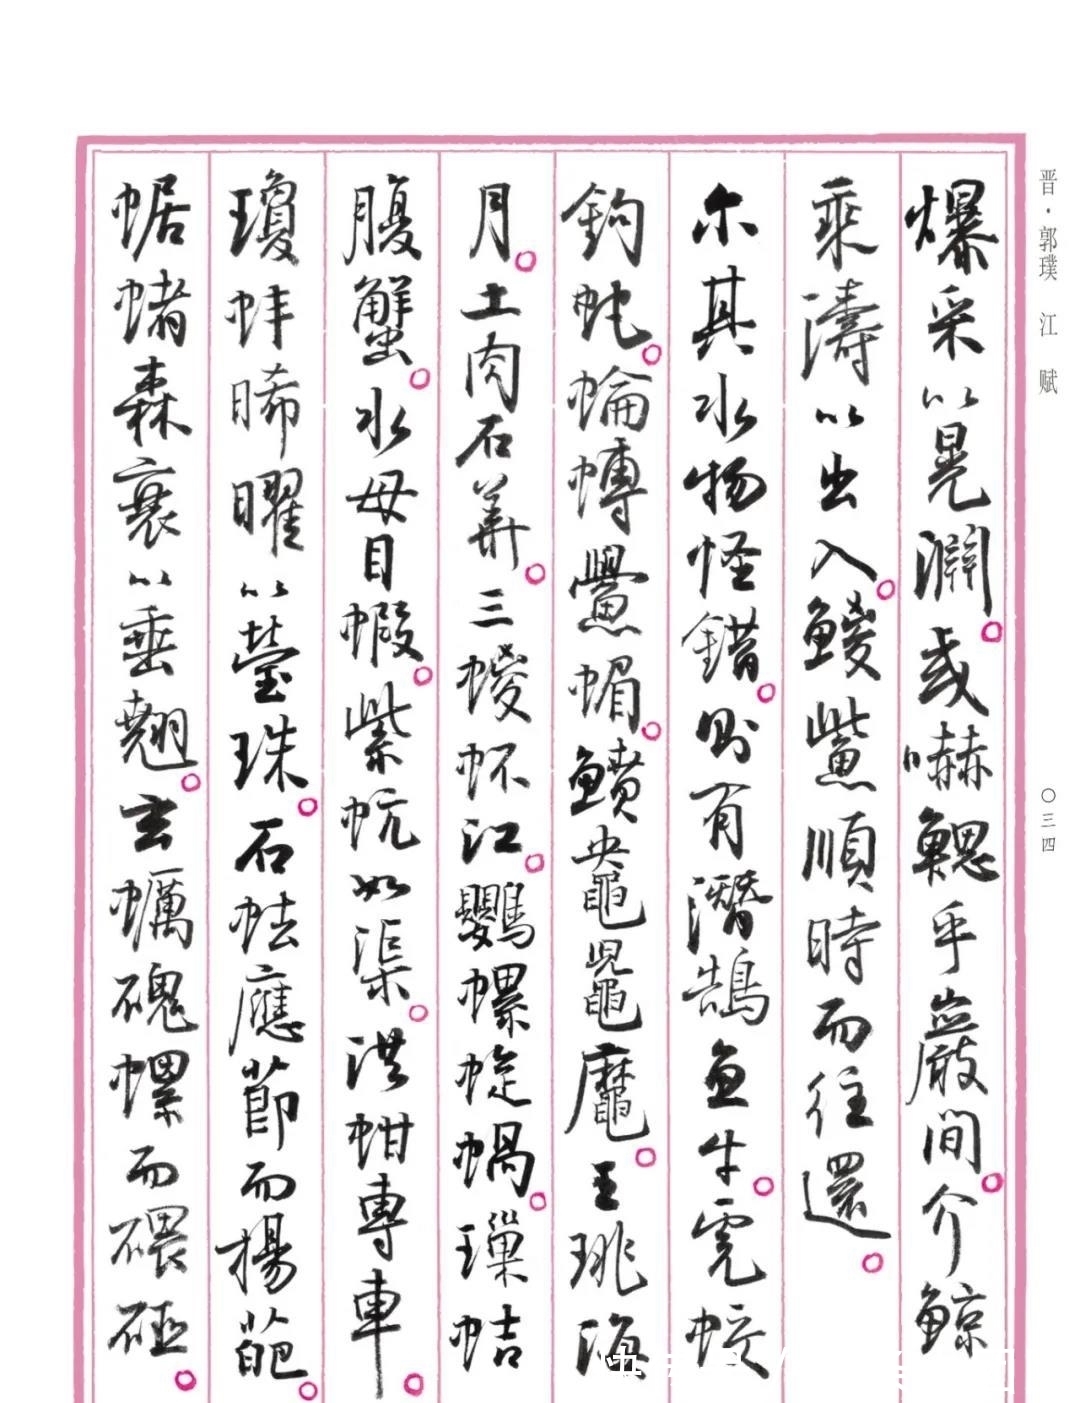 晋·郭璞 江 赋
〇三四
爆采以晃淵或嚇鰓乎巖間介鯨
乘濤以出入鯼鮆順時而往還
尔其水物怪錯則有潛鵠魚牛虎蛟
鉤虵蜦䗚鱟蝞鱝王珧海
月土肉石華三蝬江鸚螺蜁蝸璅蛣
腹蟹水母目蝦紫蚢如渠洪蚶專車
瓊蚌晞曜以瑩珠石𧉧應節而揚葩
蜛蝫森衰以垂翹玄蠣磈螺而碨